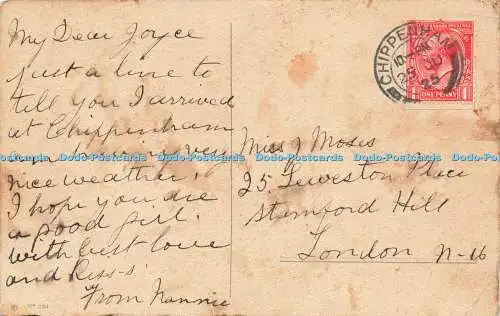 My Dear Joyce
just a line to
till you I arrived
at Chippenham
nice weather.
I hope you are
a good girl.
with best love
and Kiss-s.
From Nannie
CHIPPENHAM
25
ONE PENNY
Miss J Moses
25 Leweston Place
Stamford Hill
London N-16
Dodo-Postcards Dodo-Postcards Dodo-Postcards Dodo-Postcards Dodo-Postcards Dodo-Postcards